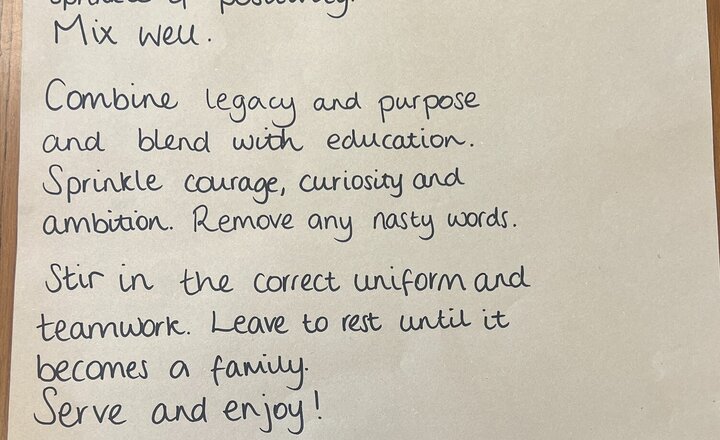 sprinkle of positivity.
Mix well.
Combine legacy and purpose
and blend with education.
Sprinkle courage, curiosity and
ambition. Remove any nasty words.
Stir in the correct uniform and
teamwork. Leave to rest until it
becomes a family.
Serve and enjoy!